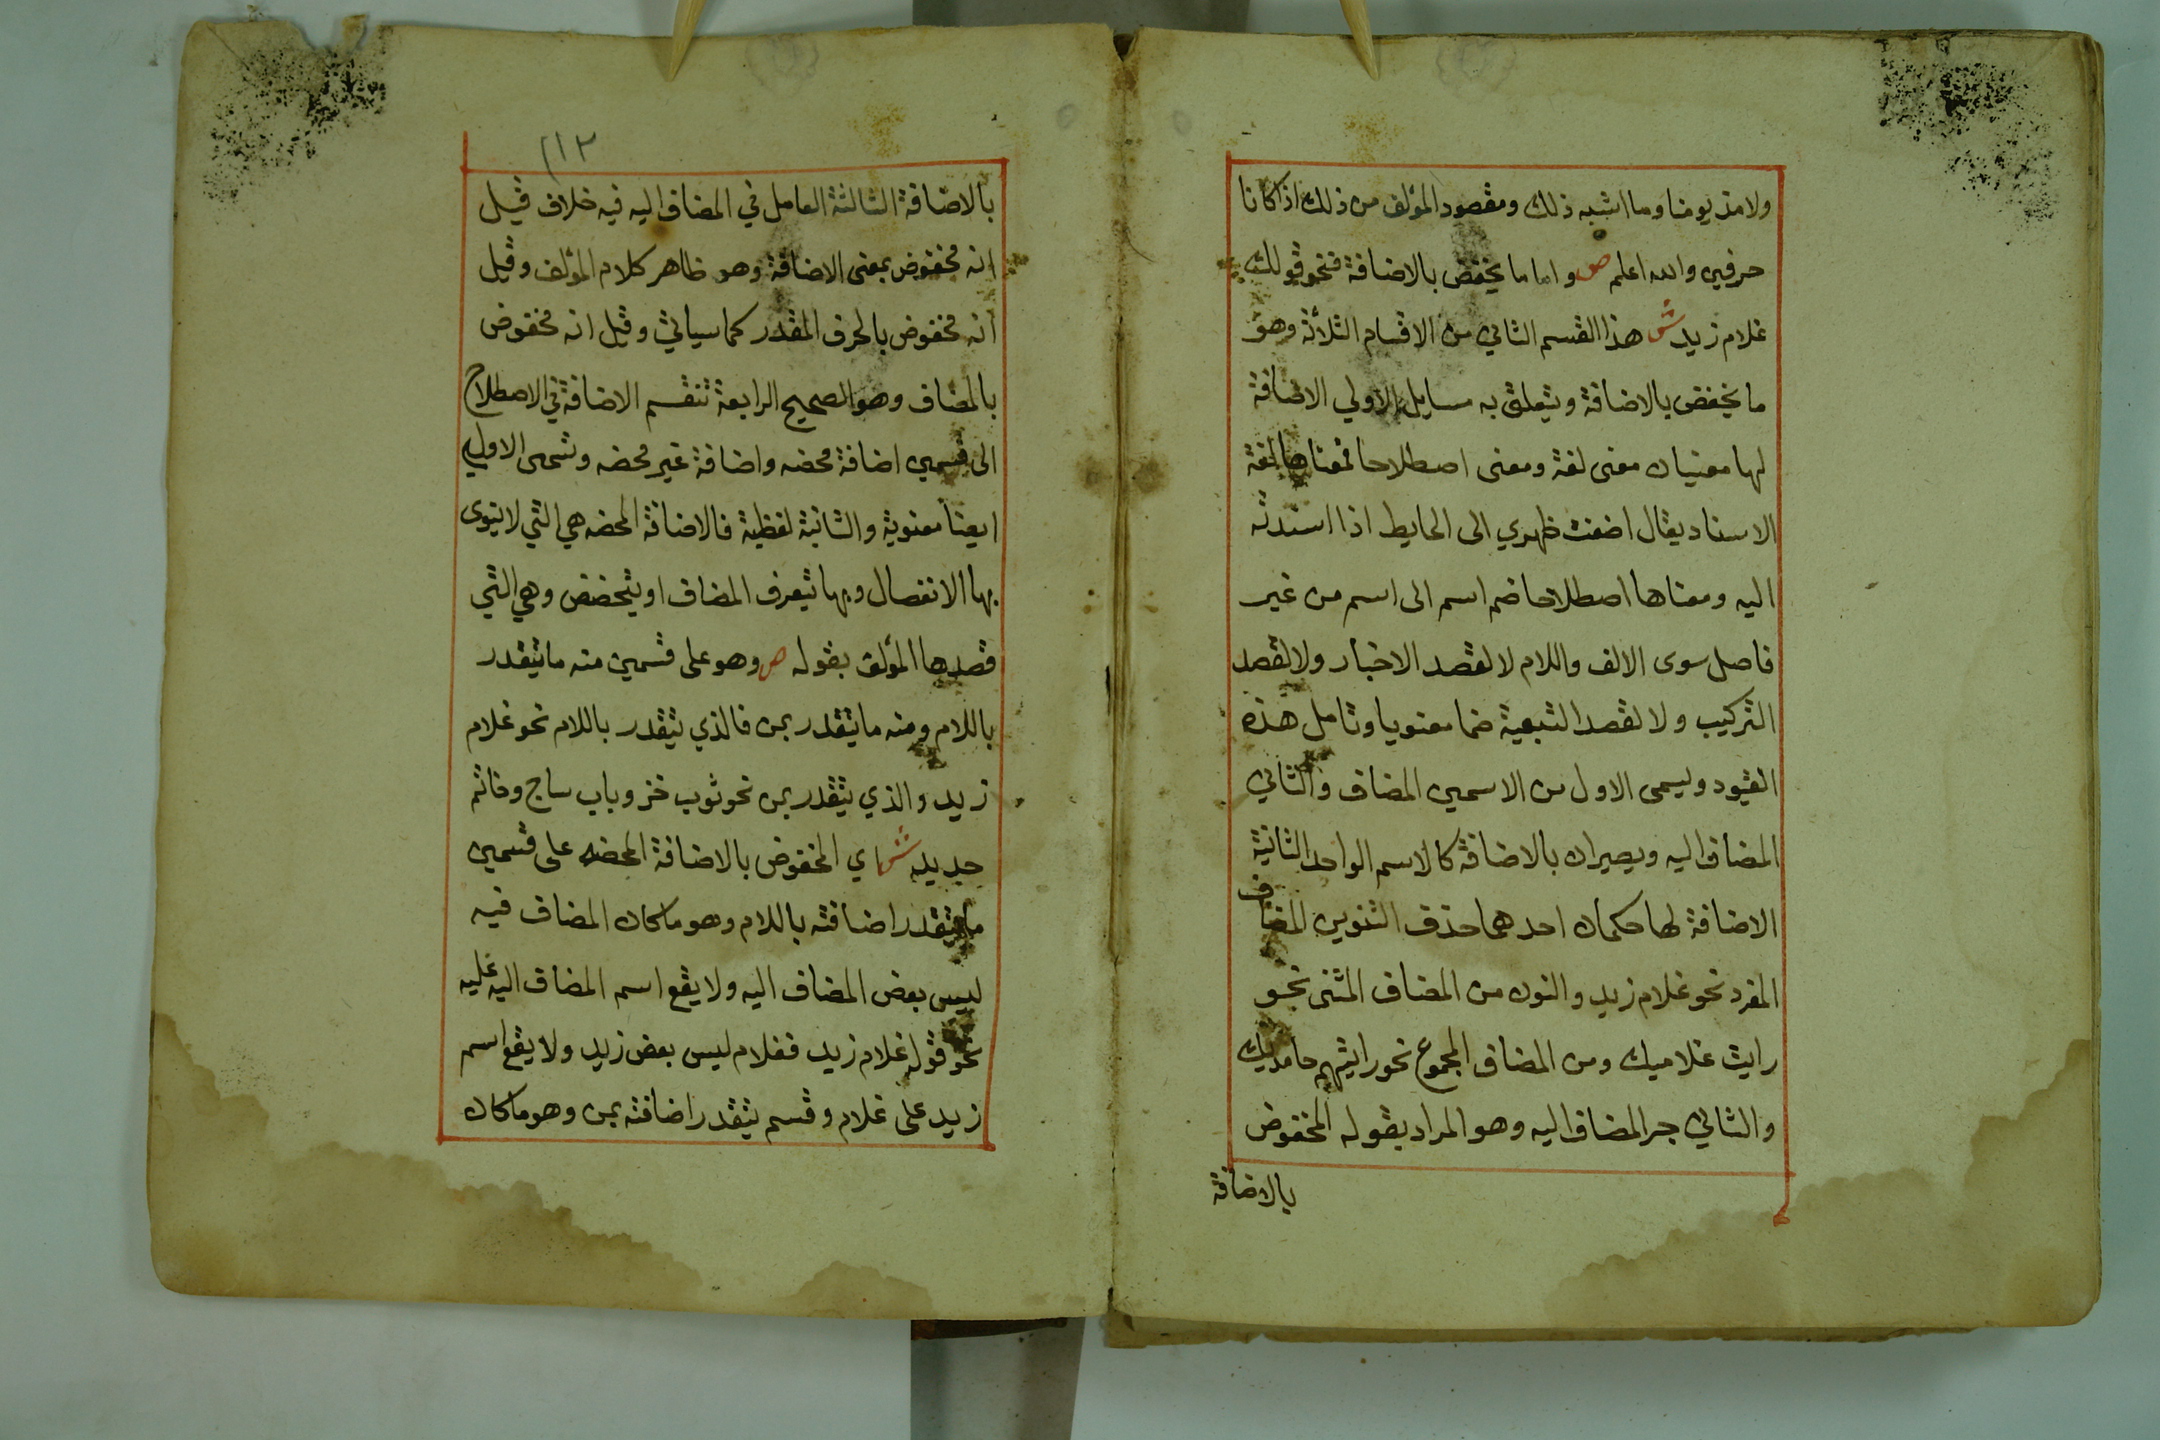 ولا مذ يومنا وما اشبه ذلك ومقصود المؤلف من ذلك اذا كانا
حرفين والله اعلم ص واما ما يخفض بالاضافة فنحو قولك
غلام زيد ش هذا القسم الثاني من الاقسام الثلاثة وهو
ما يخفض بالاضافة ويتعلق به مسايل الاولي الاضافة
لها معنيان معنى لغة ومعنى اصطلاحا فمعناها لغة
الاسناد يقال اضفت ظهري الى الحايط اذا اسندته
اليه ومعناها اصطلاحا ضم اسم الى اسم من غير
فاصل سوى الالف واللام لا لقصد الاخبار ولا لقصد
التركيب ولا لقصد التبعية ضما معنويا وتامل هذه
القيود وليسمى الاول من الاسمين المضاف والثاني
المضاف اليه ويصيران بالاضافة كالاسم الواحد الثانية
الاضافة لها حكمان احدهما حذف التنوين للمضاف
المفرد نحو غلام زيد والنون من المضاف المثنى نحو
رايت غلاميك ومن المضاف المجموع نحو رايتهم حامديك
والثاني جر المضاف اليه وهو المراد بقوله المخفوض
بالاضافة
٢١٣
بالاضافة الثالثة العامل في المضاف اليه فيه خلاف قيل
انه مخفوض بمعنى الاضافة وهو ظاهر كلام المؤلف وقيل
انه مخفوض بالحرف المقدر كما سياتي وقيل انه مخفوض
بالمضاف وهو الصحيح الرابعة تنقسم الاضافة في الاصطلاح
الى قسمين اضافة محضه واضافة غير محضه وتسمى الاولى
ايضا معنوية والثانية لفظية فالاضافة المحضه هي التي لا ينوى
بها الانفصال وبها يتعرف المضاف او يتخصص وهي التي
قصدها المؤلف بقوله ص وهو على قسمين منه ما يتقدر
باللام ومنه ما يتقدر بمن فالذي يتقدر باللام نحو غلام
زيد والذي يتقدر بمن نحو ثوب خز وباب ساج وخاتم
حديد ش اي المخفوض بالاضافة المحضه على قسمين
ما يتقدر اضافته باللام وهو ما كان المضاف فيه
ليس بعض المضاف اليه ولا يقع اسم المضاف اليه عليه
نحو قوله غلام زيد فغلام ليس بعض زيد ولا يقع اسم
زيد على غلام وقسم يتقدر اضافته بمن وهو ما كان